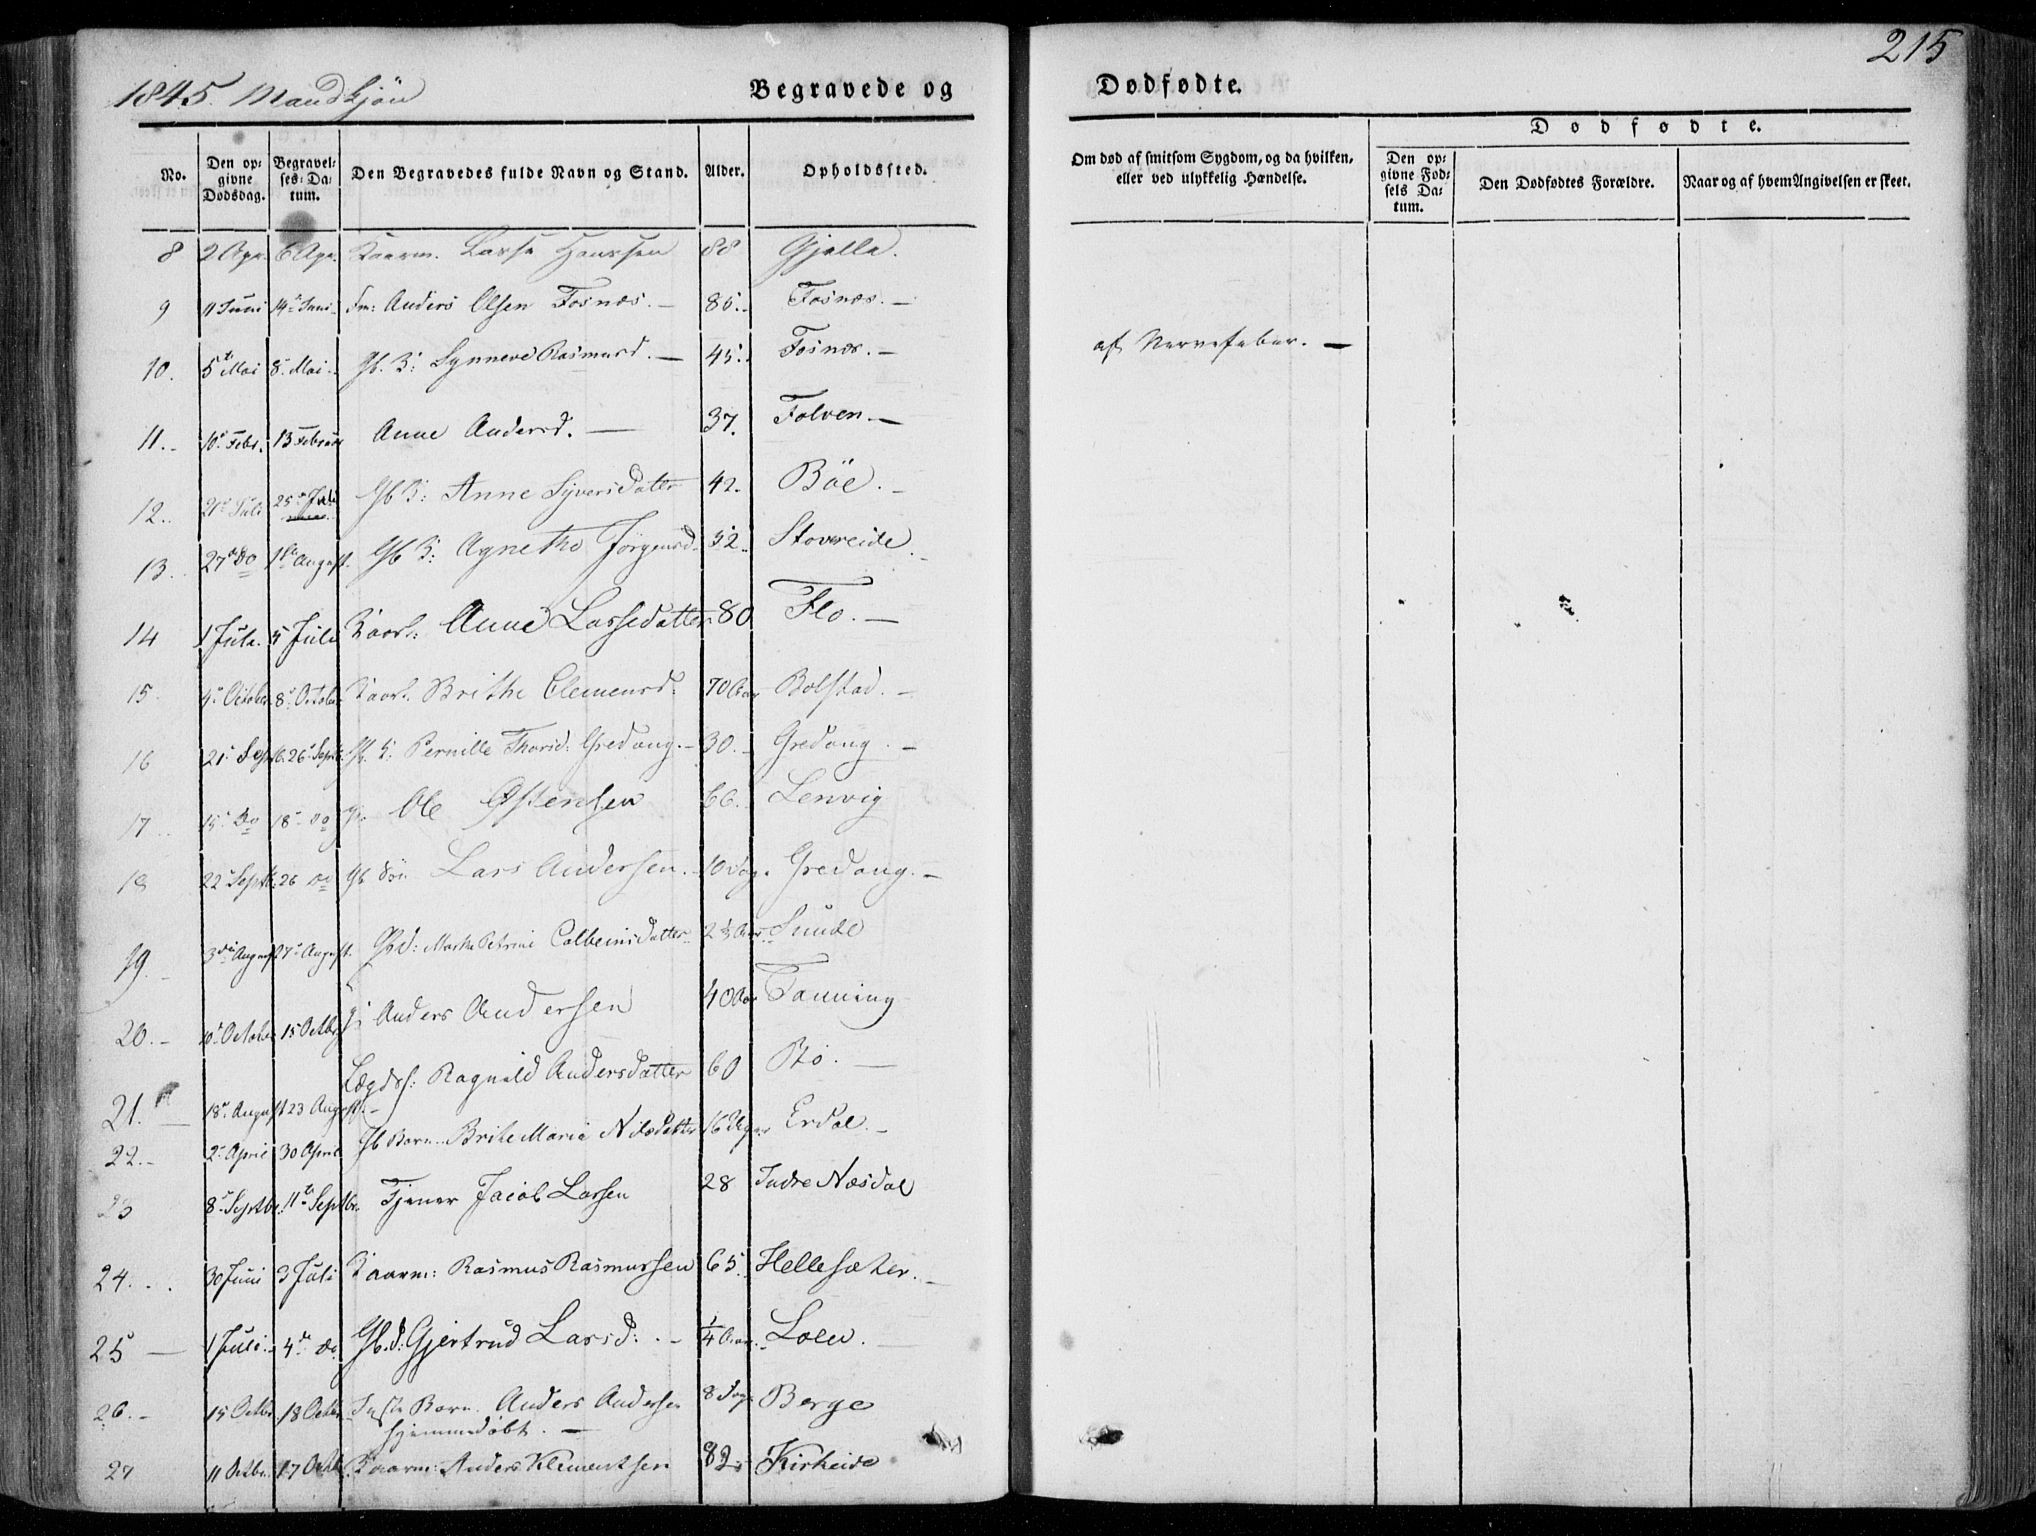 215
1845. Mandkjøn
Begravede og Dødfødte.
No.
Den opgivne Dødsdag.
Begravelses-Datum.
Den Begravedes fulde Navn og Stand.
Alder.
Opholdssted.
Om død af smitsom Sygdom, og da hvilken, eller ved ulykkelig Hændelse.
Dødfødte.
Den opgivne Fødsels Datum.
Den Dødfødtes Forældre.
Naar og af hvem Angivelsen er skeet.
8 2 Apr. 6 Apr. Kaarm. Lasse Hanssen 88 Gjelle.
9 11 Juni 14 Juni Fm: Anders Olsen Fosnæs. — 85. Fosnæs. —
10. 5te Mai 8 Mai Gb. K: Synneve Rasmusd. — 45. Fosnæs. — af Nervefeber. —
11. 10 Febr. 13 Februar Anne Andersd. — 37. Folven. —
12. 21 Juli 25 Juli Gb K: Anne Syversdatter 42. Böe. —
13. 27 Do 1ste August. Gb K: Agnethe Jørgensd. 52. Stovreide. —
14 1 Juli. 5 Juli Kaark: Anne Lassedatter 80 Flo. —
15. 4 October 8 October Kaark. Brithe Clemensd. 70 Aar Bolstad. —
16 21 Sept. 26 Septb. Gb. K: Pernille Thorsd: Gredung. — 30. Gredung. —
17. 15 Do 18 do Ole Østensen 66. Lenvig
18 22 Septb. 26 do Gb Søn Lars Andersen. 10 Dag. Gredung. —
19. 3die August 27 August. Gbd: Marthe Petrine Colbeinsdatter 2½ Aar Sunde
20. — 10 October 15 Octbr. Anders Andersen 40 Aar Tanning
21. 18 August 23 August. Lægdsl: Ragnild Andersdatter 60 Bø. —
22. 2 April 30 April Gb Barn Brite Maria Nilsdatter 16 Uger Erdal. —
23 8 Septbr. 11te Septbr. Tjener Jacob Larsen 28 Indre Næsdal
24. 30 Juni 3 Juli Kaarm: Rasmus Rasmussen 65. Hellesæter. —
25 — 1 Juli. 4 do Gb.d: Gjertrud Larsd: — ¼ Aar Loen. —
26. 15 Octbr. 18 Octbr. Inste Barn. Anders Andersen 8 Dag Berge
hjemmedøbt. —
27 11 Octbr. 17 Octbr. Kaarm: Anders Klementsen 82. Kirkeide